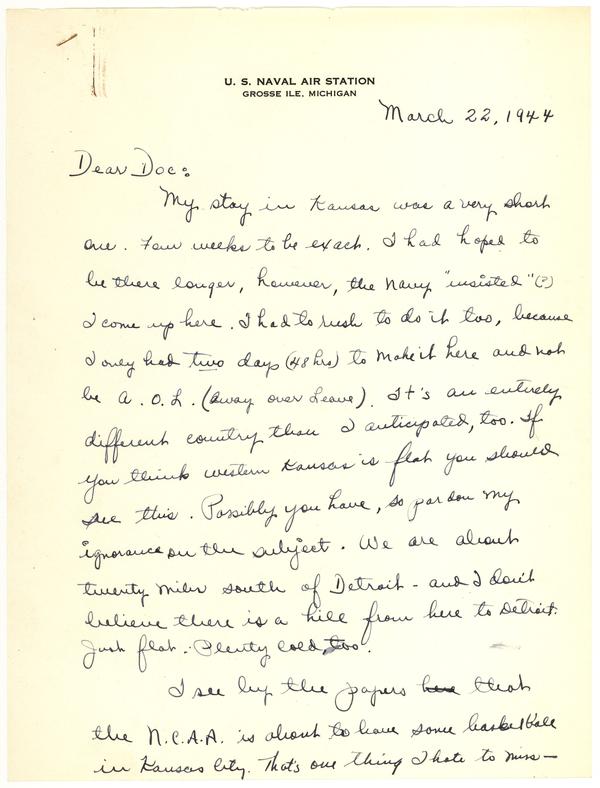 U. S. NAVAL AIR STATION
GROSSE ILE, MICHIGAN
March 22, 1944
Dear Doc:
My stay in Kansas was a very short
one. Four weeks to be exact. I had hoped to
be there longer, however, the Navy "insisted" (?)
I come up here. I had to rush to do it too, because
I only had two days (48 hrs) to make it here and not
be A.O.L. (Away over Leave). It's an entirely
different country than I anticipated, too. If
you think western Kansas is flat you should
see this. Possibly you have, so pardon my
ignorance on the subject. We are about
twenty miles south of Detroit - and I don't
believe there is a hill from here to Detroit.
Just flat. Plenty cold, too.
I see by the papers that
the N.C.A.A. is about to have some basketball
in Kansas City. That's one thing I hate to miss—